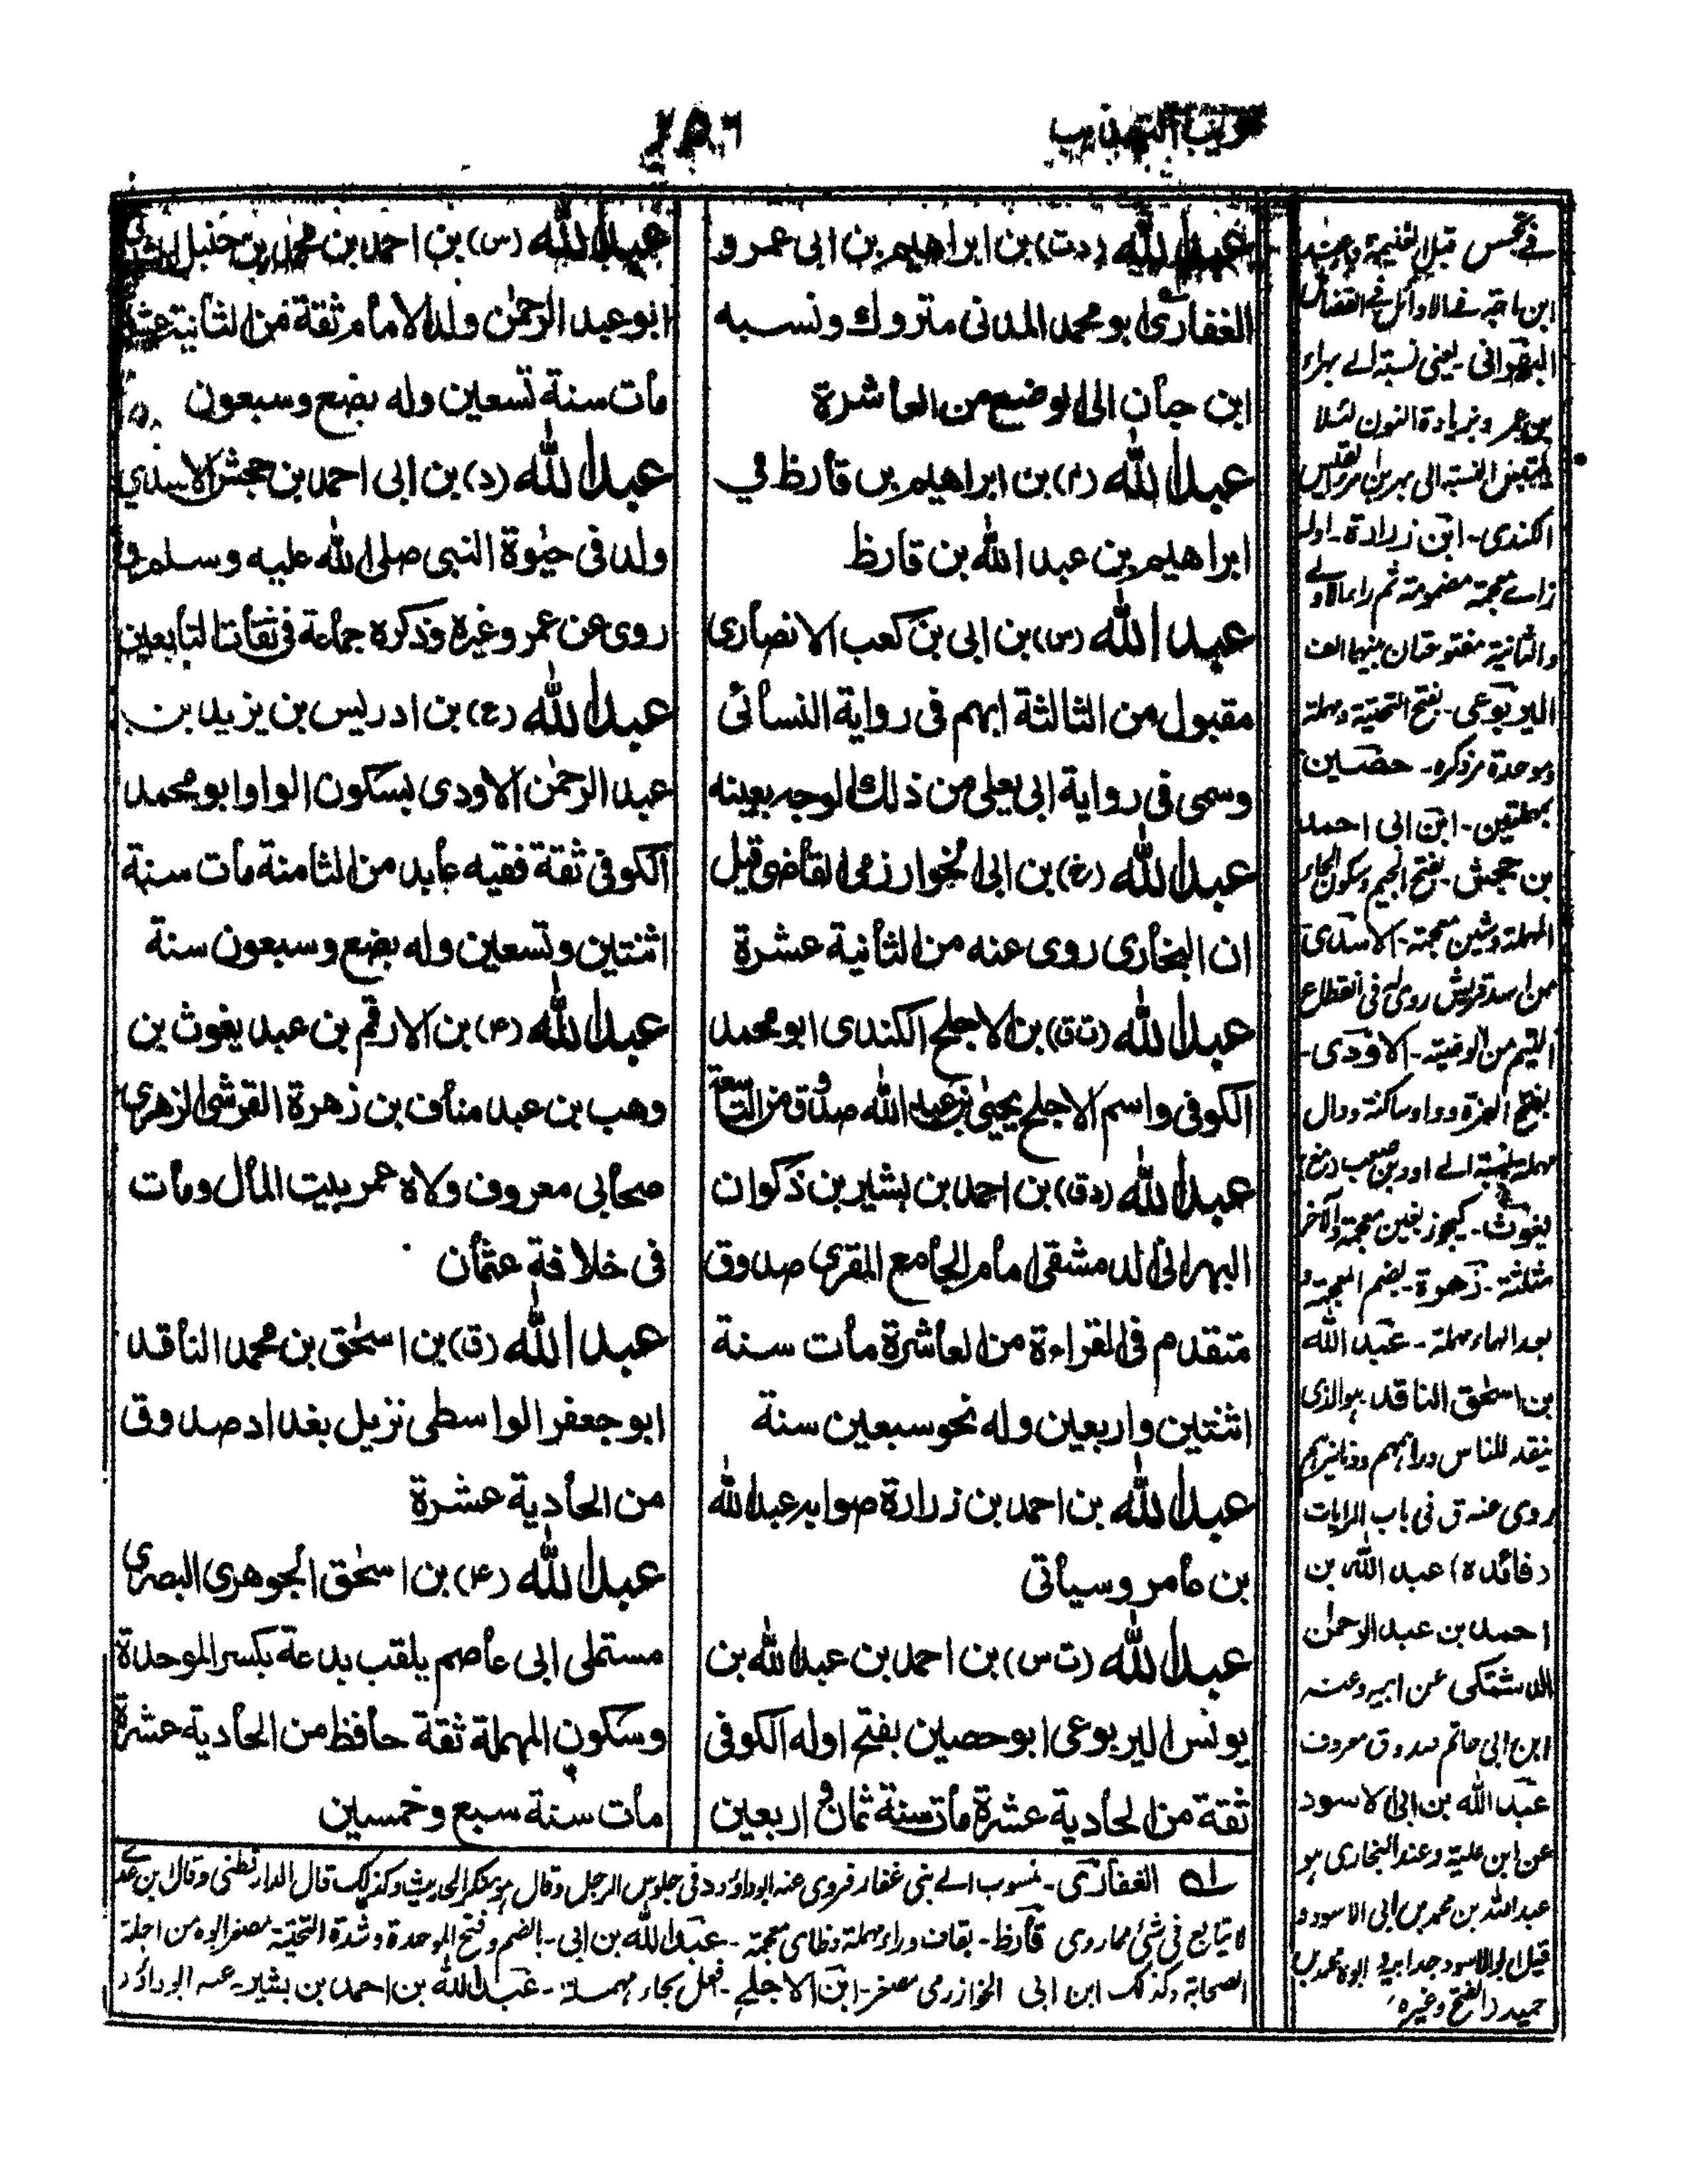 تقريب التهذيب
٢٥٦
عبد الله (دت) بن ابراهيم بن ابى عمرو
الغفارى ابو محمد المدنى متروك ونسبه
ابن حبان الى الوضع من العاشرة
عبد الله (م) بن ابراهيم بن قارظ في
ابراهيم بن عبد الله بن قارظ
عبد الله (س) بن ابى بن كعب الانصارى
مقبول من الثالثة ابهم فى رواية النسائى
وسمى فى رواية ابى يعلى من ذلك الوجه بعينه
عبد الله (خ) بن ابى الخوارزمى القاضى قيل
ان البخارى روى عنه من الثانية عشرة
عبد الله (ت ق) بن الاجلح الكندى ابو محمد
الكوفى واسم الاجلح يحيى بن عبد الله صدوق من التاسعة
عبد الله (دق) بن احمد بن بشير بن ذكوان
البهرانى الدمشقى امام الجامع المقرى صدوق
متقدم فى القراءة من العاشرة مات سنة
اثنتين واربعين وله نحو سبعين سنة
عبد الله بن احمد بن زرارة صوابه عبد الله
بن عامر وسيأتى
عبد الله (ت س) بن احمد بن عبد الله بن
يونس اليربوعى ابو حصين بفتح اوله الكوفى
ثقة من الحادية عشرة مات سنة ثمان و اربعين
عبد الله (س) بن احمد بن محمد بن حنبل الشيبانى
ابو عبد الرحمٰن ولد الامام ثقة من الثانية عشرة
مات سنة تسعين وله بضع وسبعون
عبد الله (د) بن ابى احمد بن جحش الاسدي
ولد فى حيٰوة النبى صلى الله عليه وسلم و
روى عن عمر وغيره وذكره جماعة فى ثقات التابعين
عبد الله (ع) بن ادريس بن يزيد بن
عبد الرحمٰن الاودى بسكون الواو ابو محمد
الكوفى ثقة فقيه عابد من الثامنة مات سنة
اثنتين وتسعين وله بضع وسبعون سنة
عبد الله (٤) بن الارقم بن عبد يغوث بن
وهب بن عبد مناف بن زهرة القرشى الزهرى
صحابى معروف ولاه عمر بيت المال ومات
فى خلافة عثمان
عبد الله (ق) بن اسحٰق بن محمد الناقد
ابو جعفر الواسطى نزيل بغداد صدوق
من الحادية عشرة
عبد الله (٤) بن اسحٰق الجوهرى البصرى
مستملى ابى عاصم يلقب بدعة بكسر الموحدة
وسكون المهملة ثقة حافظ من الحادية عشرة
مات سنة سبع وخمسين
ابن ماجة فے الاوائل فے الفضائل
البهرانى - يعنى نسبة الے بهراء
بن عمر و بزيادة النون لئلا
الكندى - ابن زرارة - اوله
زاے معجمة مضمومة ثم راء الاولے
والثانية مفتوحتان بينهما الف
اليربوعى - بفتح التحتية ومهملة
وموحدة مر ذكره - حصين
بمهلتين - ابن ابى احمد
بن جحش - بفتح الجيم وسكون الحاء
المهملة وشين معجمة - الاسدى
من اسد قريش روى له فى انقطاع
اليتم من الوصية - الاودى -
بفتح الهمزة وواو ساكنة ودال
مهملة نسبة الے اود بن صعب
يغوث - كيجوز بغين معجمة والآخر
مثلثة - زهرة - بضم المعجمة و
بعد الهاء مهملة - عبد الله
بن اسحٰق الناقد هو الذى
ينقد للناس دراهمهم ودنانيرهم
روى عنه ق فى باب الرايات
(فائدة) عبد الله بن
احمد بن عبد الرحمٰن
الدشتكى عن ابيه وعنه
ابن ابى حاتم صدوق معروف
عبد الله بن ابى الاسود
عن ابن علية وعند البخارى هو
عبد الله بن محمد بن ابى الاسود و
قيل ابو الاسود جد ابيه ابوه محمد بن
حميد (الفتح وغيره)
الغفارى - منسوب الے بنى غفار فروى عنه ابو داؤد فى جلوس الرجل وقال هو منكر الحديث وكذلك قال الدارقطنى وقال بن عدے
لا يتابع فى شئ مما روى قارظ - بقاف وراء مهملة وظاى معجمة - عبد الله بن ابى - بالضم وفتح الموحدة وشدة التحتية مصغر ابوه من اجلة
الصحابة وكذلك ابن ابى الخوارزمى مصغر - ابن الاجلح - فعل بحاء مهملة - عبد الله بن احمد بن بشير - عنه ابو داؤد